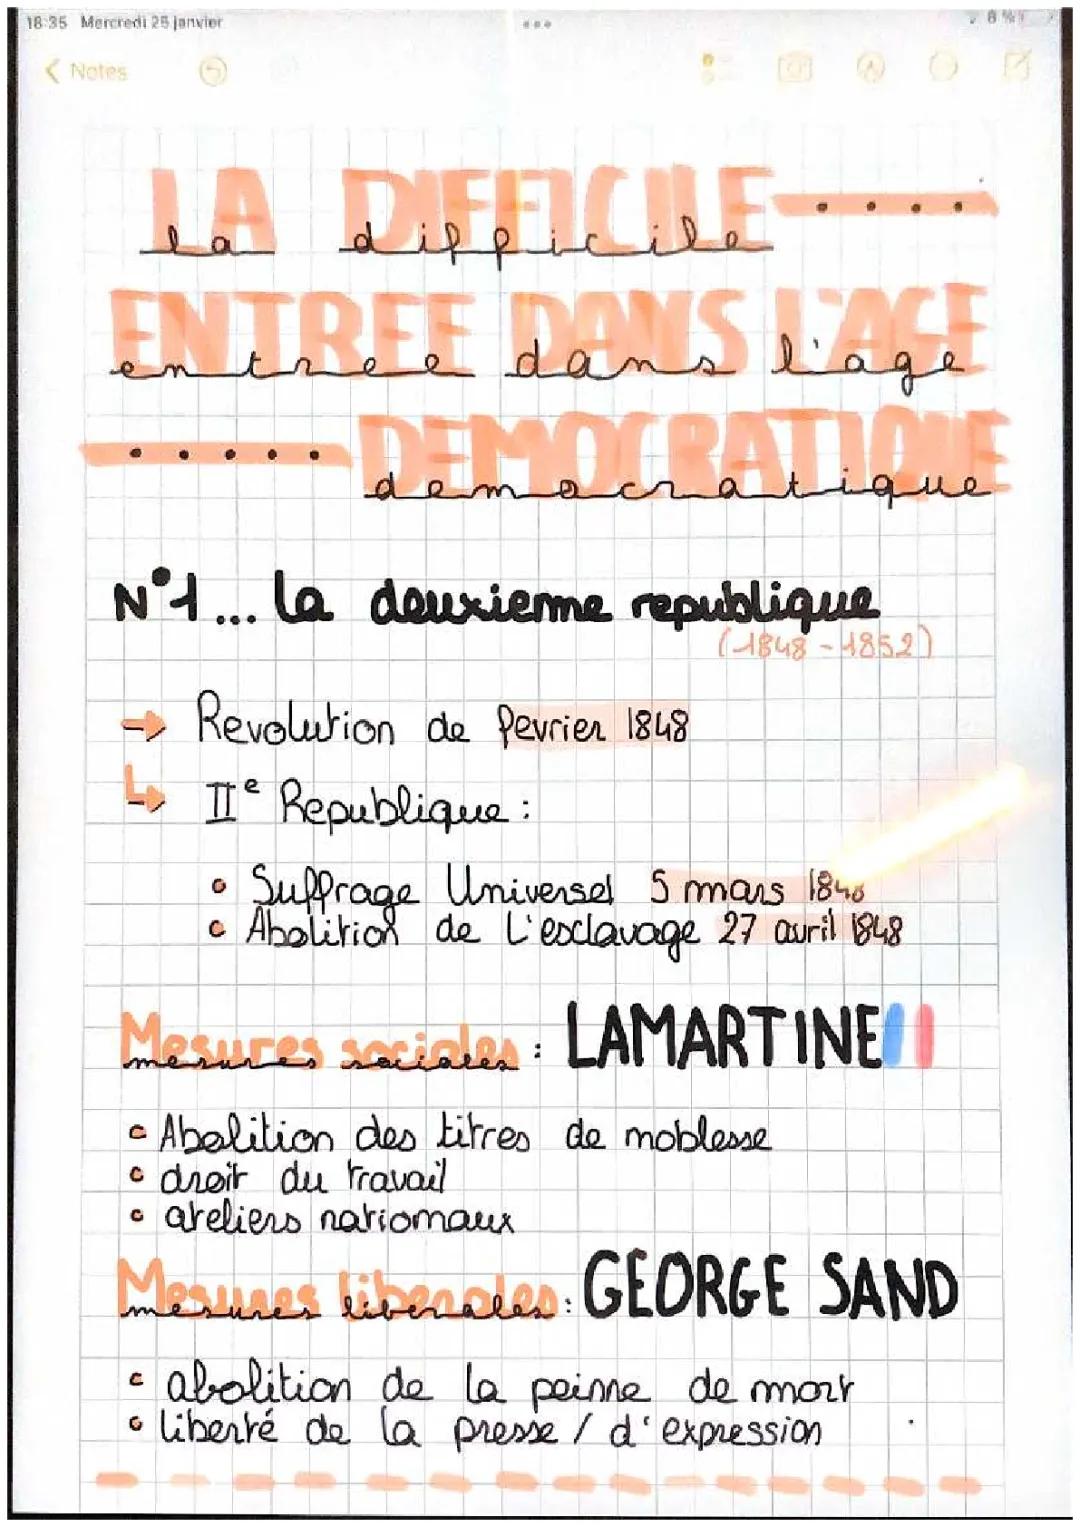 18:35 Mercredi 25 janvier
8 %
Notes
LA DIFFICILE
la difficile
ENTREE DANS L'AGE
entree dans l'age
DEMOCRATIQUE
democratique
N°1... la deuxieme republique
(1848 - 1852)
→ Revolution de fevrier 1848
↳ IIe Republique :
• Suffrage Universel 5 mars 1848
• Abolition de l'esclavage 27 avril 1848
Mesures sociales
mesures sociales : LAMARTINE
• Abolition des titres de noblesse
• droit du travail
• ateliers nationaux
Mesures liberales
mesures liberales : GEORGE SAND
• abolition de la peine de mort
• liberté de la presse / d'expression